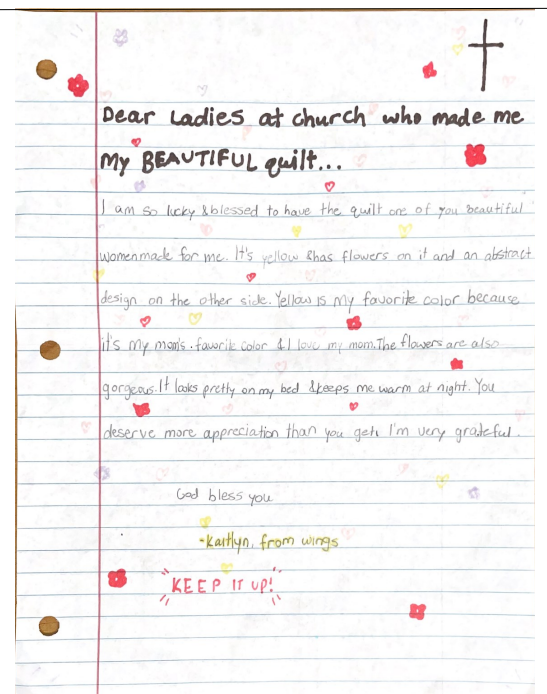 Dear Ladies at church who made me
My BEAUTIFUL quilt...
I am so lucky & blessed to have the quilt one of you beautiful
women made for me. It's yellow & has flowers on it and an abstract
design on the other side. Yellow is my favorite color because
it's my mom's favorite color & I love my mom. The flowers are also
gorgeous. It looks pretty on my bed & keeps me warm at night. You
deserve more appreciation than you get. I'm very grateful.
God bless you
-Kaitlyn, from wings
KEEP IT UP!